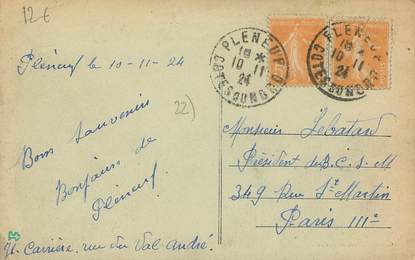 12€
PLENEUF
18 *
10 11
24
COTES DU NORD
PLENEUF
18
10 11
24
COTES DU NORD
Pléneuf le 10-11-24
22)
Bons souvenirs
Bonjours de
Pléneuf
Monsieur Lebatard
Président du B.C.S-M
349 Rue St Martin
Paris IIIe
Carrière, rue du Val André.